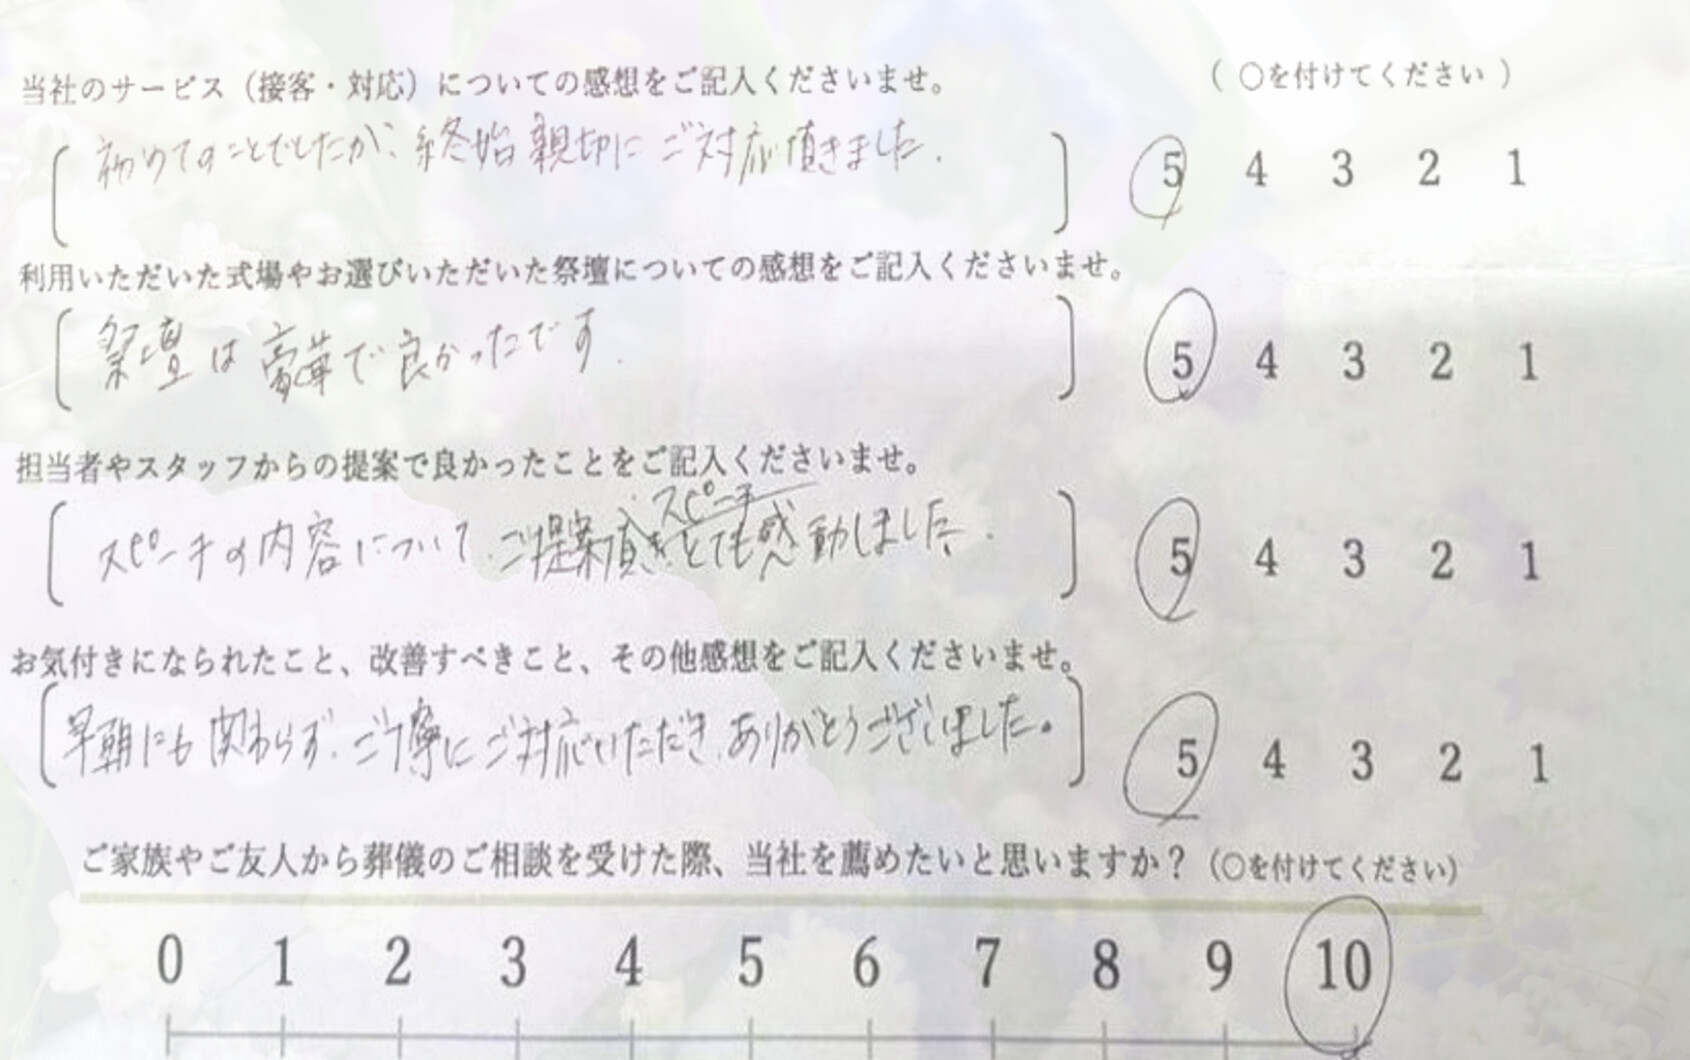 当社のサービス（接客・対応）についての感想をご記入くださいませ。 （ ○を付けてください ）
初めてのことでしたが、終始親切にご対応頂きました. 5 4 3 2 1
利用いただいた式場やお選びいただいた祭壇についての感想をご記入くださいませ。
祭壇は豪華で良かったです. 5 4 3 2 1
担当者やスタッフからの提案で良かったことをご記入くださいませ。
スピーチ
スピーチの内容について、ご提案頂き、とても感動しました. 5 4 3 2 1
お気付きになられたこと、改善すべきこと、その他感想をご記入くださいませ。
早朝にも関わらず、ご丁寧にご対応いただき、ありがとうございました。 5 4 3 2 1
ご家族やご友人から葬儀のご相談を受けた際、当社を薦めたいと思いますか？（○を付けてください）
0 1 2 3 4 5 6 7 8 9 10